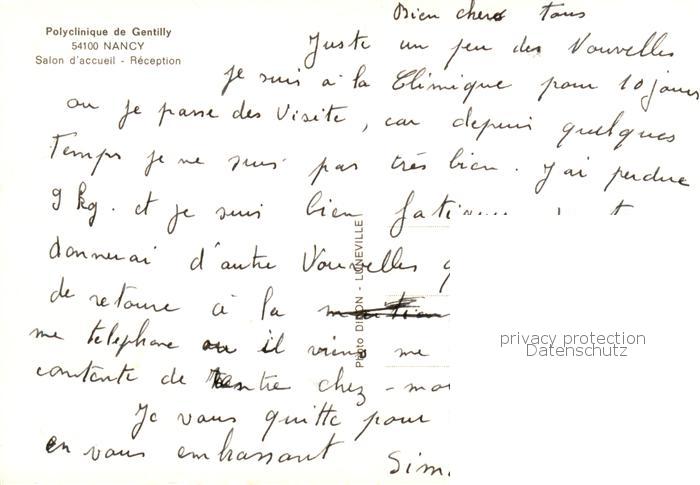 Polyclinique de Gentilly
54100 NANCY
Salon d'accueil - Réception
Bien chers tous
Juste un peu des Nouvelles
je suis à la Clinique pour 10 jours
ou je passe des Visite, car depuis quelques
Temps je ne suis pas très bien. J'ai perdue
9 kg. et je suis bien
donnerai d'autre Nouvelles
de retour à la
me telephone il viens me
contente de chez-moi
Je vous quitte pour
en vous embrassant Sim
Photo DINON - LUNEVILLE
privacy protection
Datenschutz